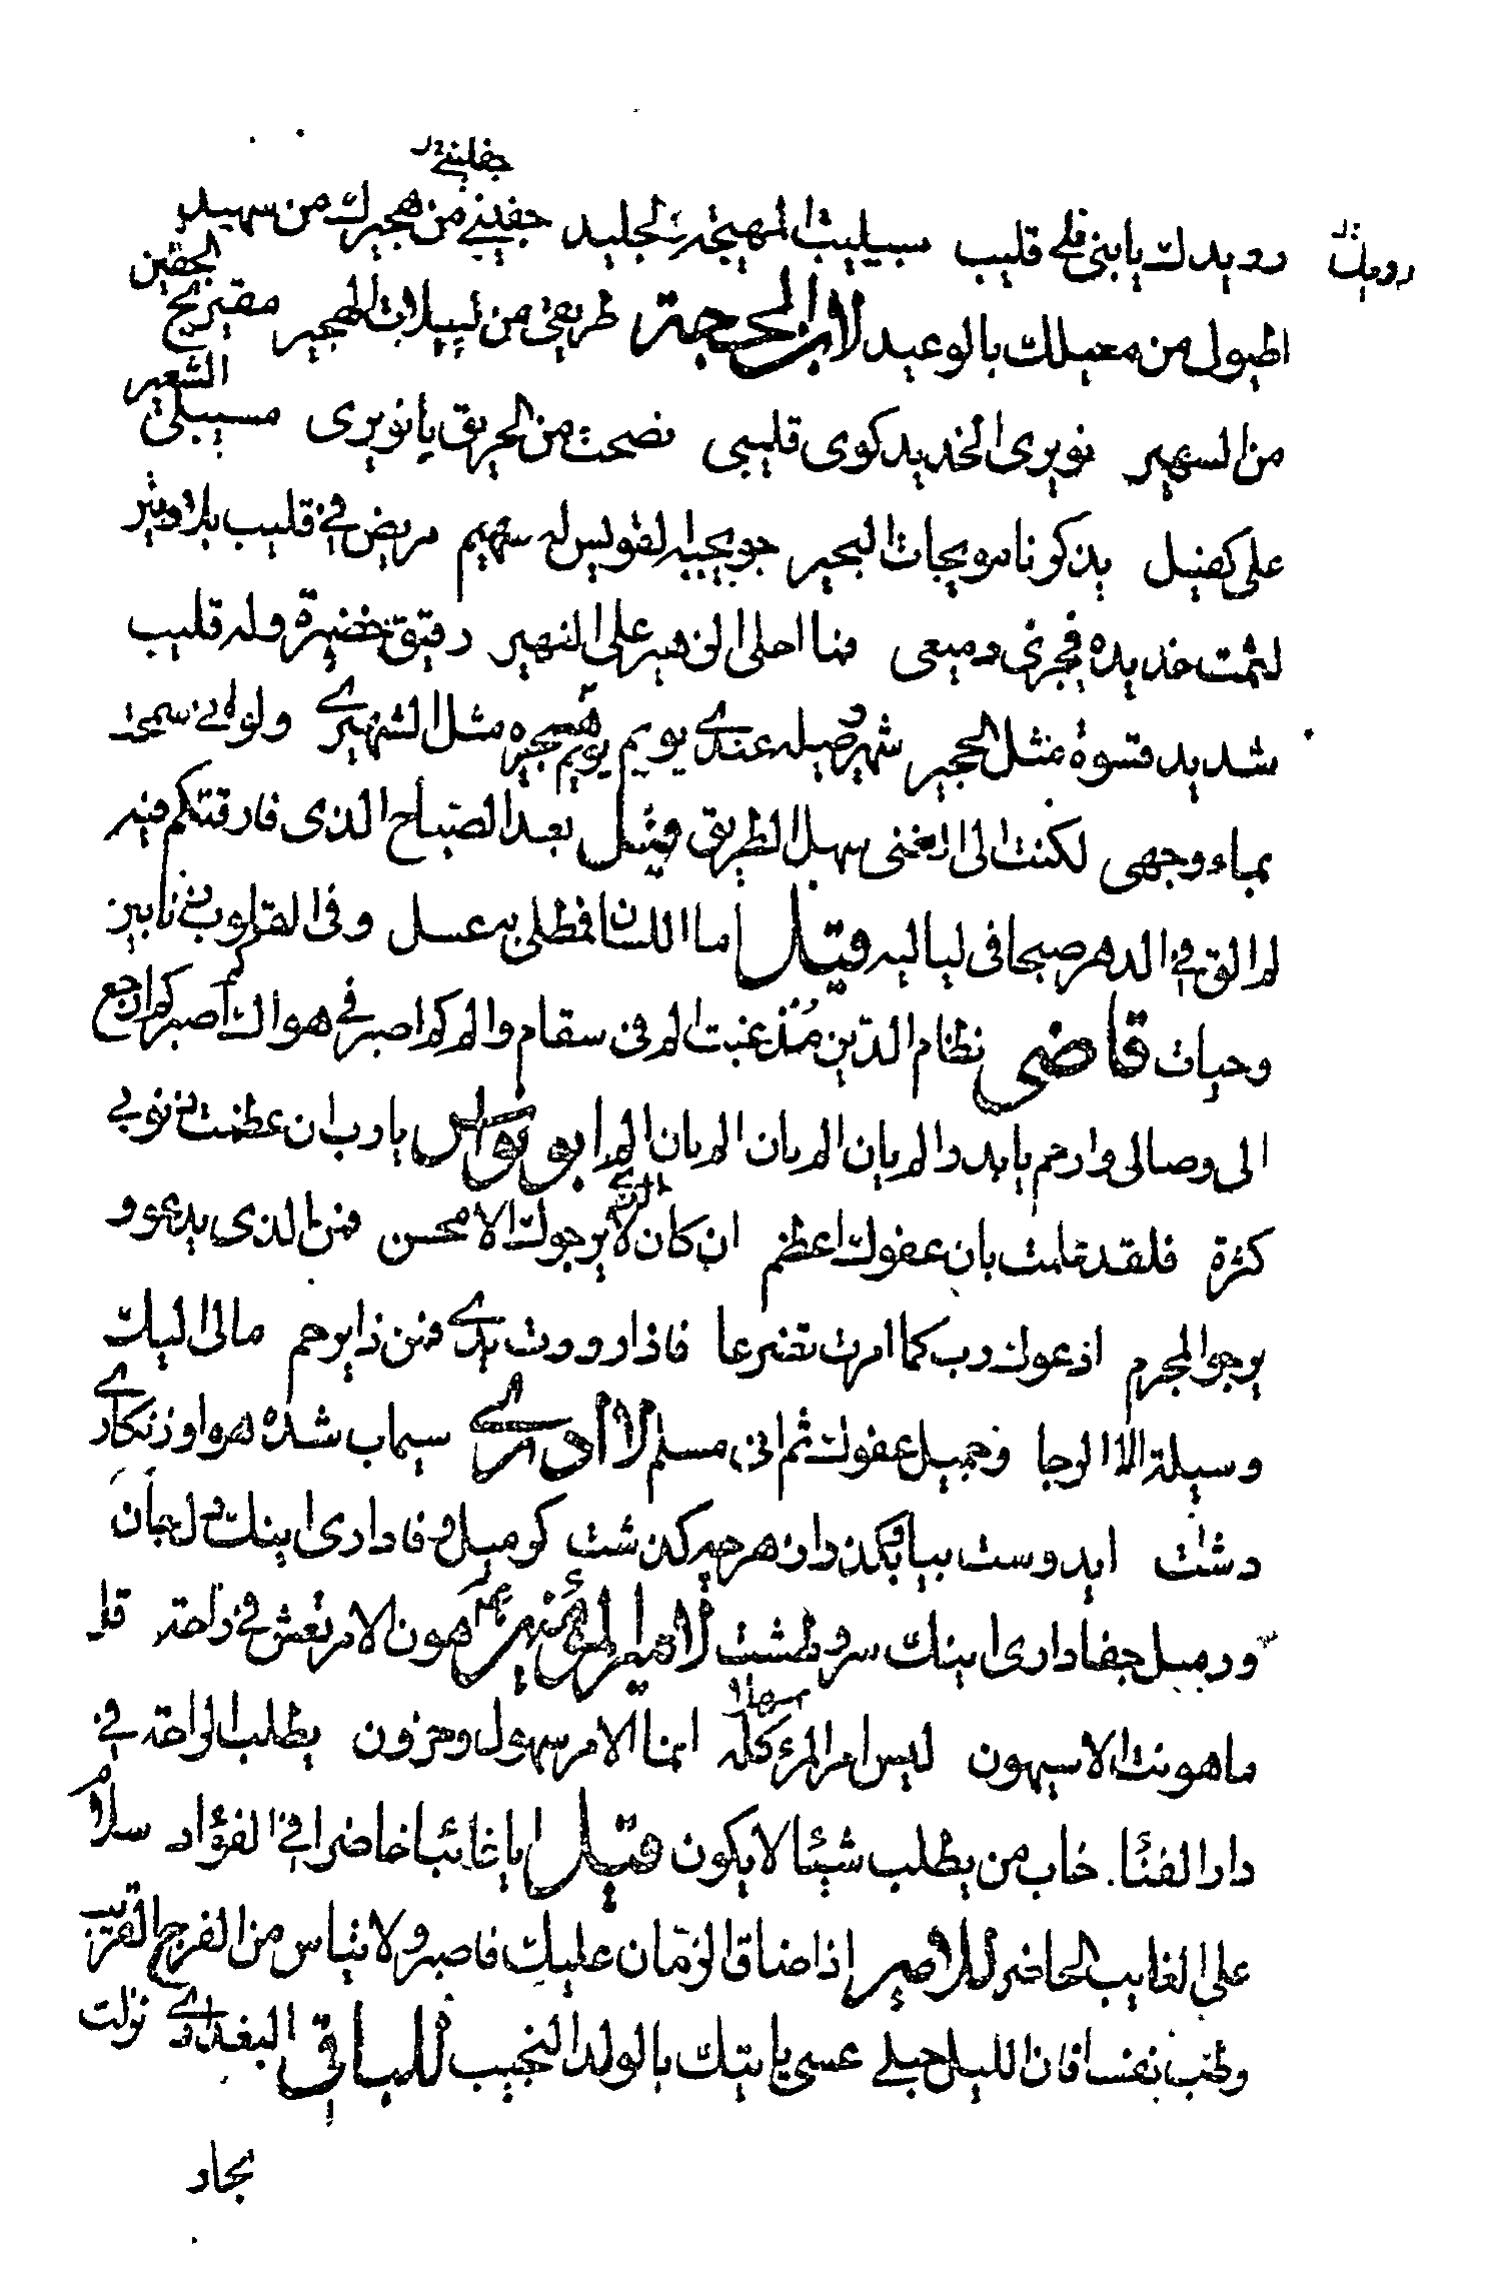 جفيني
رويدك رويدك يابني فلي قليب سبيليب المهيجة لجليد جفيني من هجيرك من سهيد
اطيول من معيلك بالوعيد لابن الحجة طريفي من لييلات الهجير مقيريح الجفين
من السهير نويرى الخديد كوى قليبي نضحت من الحريق يا نويرى مسيبلي الشعير
على كفيل يذكرنا مويجات البحير جويجبه لقويس له سهيم مريض في قليب بلا وتير
لثمت خديده فجرى دميعى فما احلى الزهير على النهير رقيق خضيرة وله قليب
شديد قسوة مثل الحجير شهير وصيله عندي يويم يويم هجيره مثل الشهيري ولو اني سمحت
بماء وجهى لكنت الى الغنى سهل الطريق وقيل بعد الصباح الذى فارقتكم فيه
لم الق في الدهر صبحا فى لياليه وقيل اما اللسان فمطلى به عسل وفى القلوب زنابير
وحيات قاضى نظام الدين مذ غبت الم فى سقام والم كم اصبر في هواك كم اصبر كم ارجع
الى وصالى وارحم يا بدر الم يان الم يان الم يان الم ابو نواس يا رب ان عظمت ذنوبي
كثرة فلقد علمت بان عفوك اعظم ان كان لا يرجوك الا محسن فمن الذى يدعو و
يرجو المجرم ادعوك رب كما امرت تضرعا فاذا رددت يدي فمن ذا يرحم مالى اليك
وسيلة الا الرجا وجميل عفوك ثم انى مسلم لا ادري سيماب شده هوا و زنكاري
دشت ايدوست بيا بكذر از هرچه كذشت كو ميل وفا دارى اينك دل و جان
ور ميل جفا دارى اينك سر و طشت لامير المؤمنين ع هون الامر تعش في راحة قل
ما هونت الا سيهون ليس امر المرء كله سهلا انما الامر سهول وحزون يطلب الراحة في
دار الفنا خاب من يطلب شيئا لا يكون وقيل ايا غائبا حاضرا في الفؤاد سلام
على الغايب الحاضر للامير اذا ضاق الزمان عليك فاصبر ولا تياس من الفرج القريب
وطب نفسا فان الليل حبلى عسى ياتيك بالولد النجيب للباقي البغدادي نزلت
بجاد